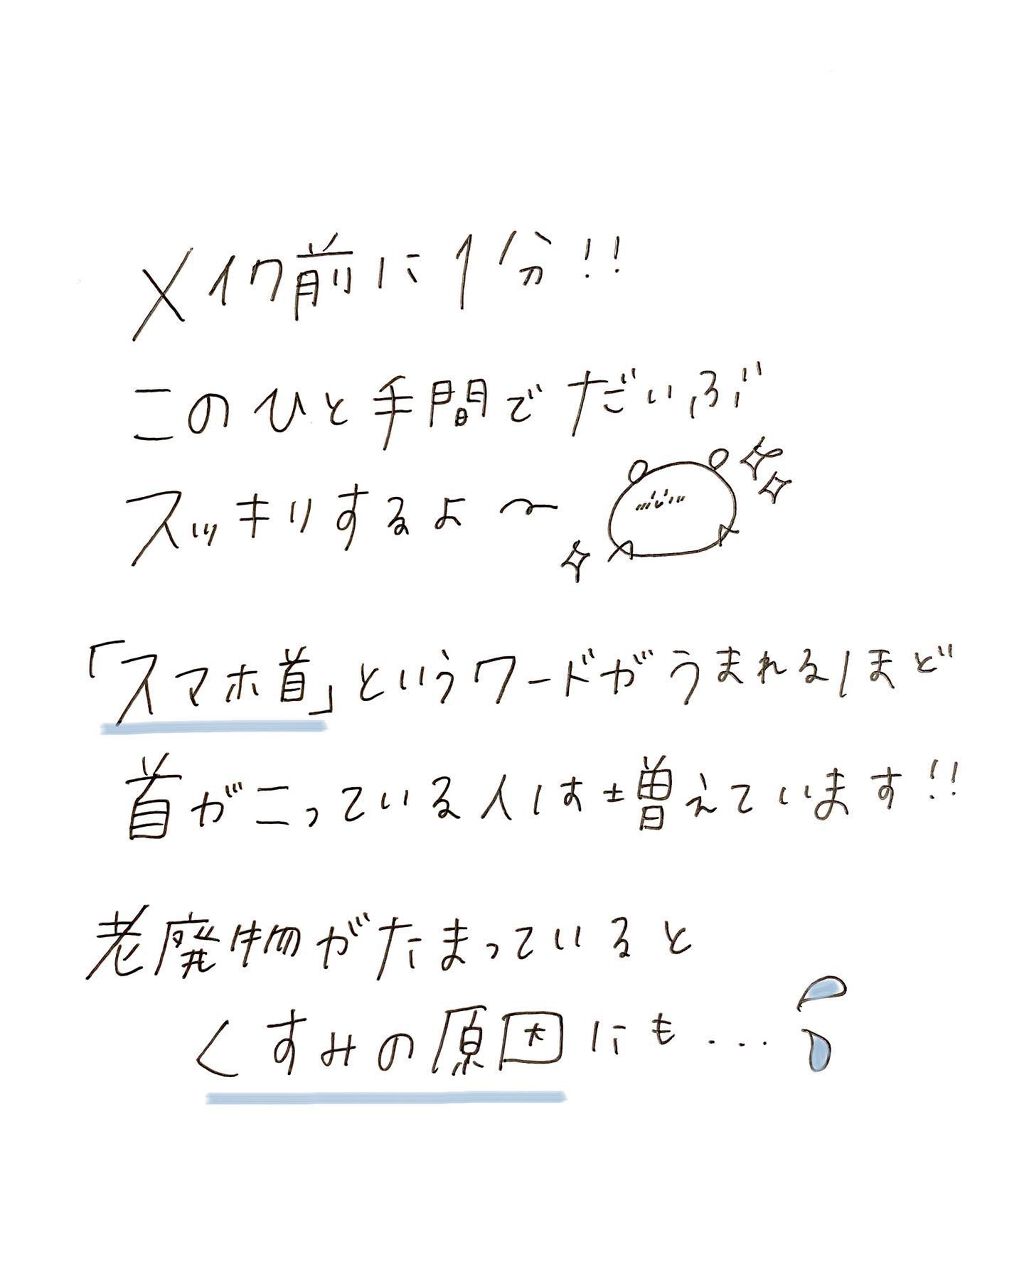 メイク前に1分!!
このひと手間でだいぶ
スッキリするよ〜
「スマホ首」というワードがうまれるほど
首がこっている人は増えています!!
老廃物がたまっていると
くすみの原因にも...